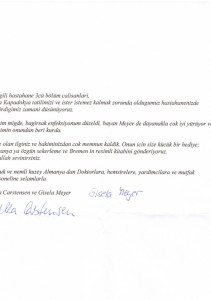 gili hastahane 3cü bölüm calisanlari,
Kapadokya tatilimizi ve ister istemez kalmak zorunda oldugumuz hastahanenizde
irdigimiz zamani düsünüyoruz.
im migde, bagirsak enfeksiyonum düzeldi, bayan Meyer de dayanakla cok iyi yürüyor v
imin onundan beri kurda
e olan ilginiz ve hakimizidan cok memnun kaldik. Onun icin size kücük bir hediye;
anya ya özgün sekerleme ve Bremen in resimli kitabini gönderiyoruz.
allah sevinirsiniz.
uk ve nemli kuzey Almanya dan Doktorlara, hemsirelere, yardimcilara ve mutfak
soneline selamlarla
a Carstensen ve Gisela Meyer Gisela Meyer
lla Carstensen